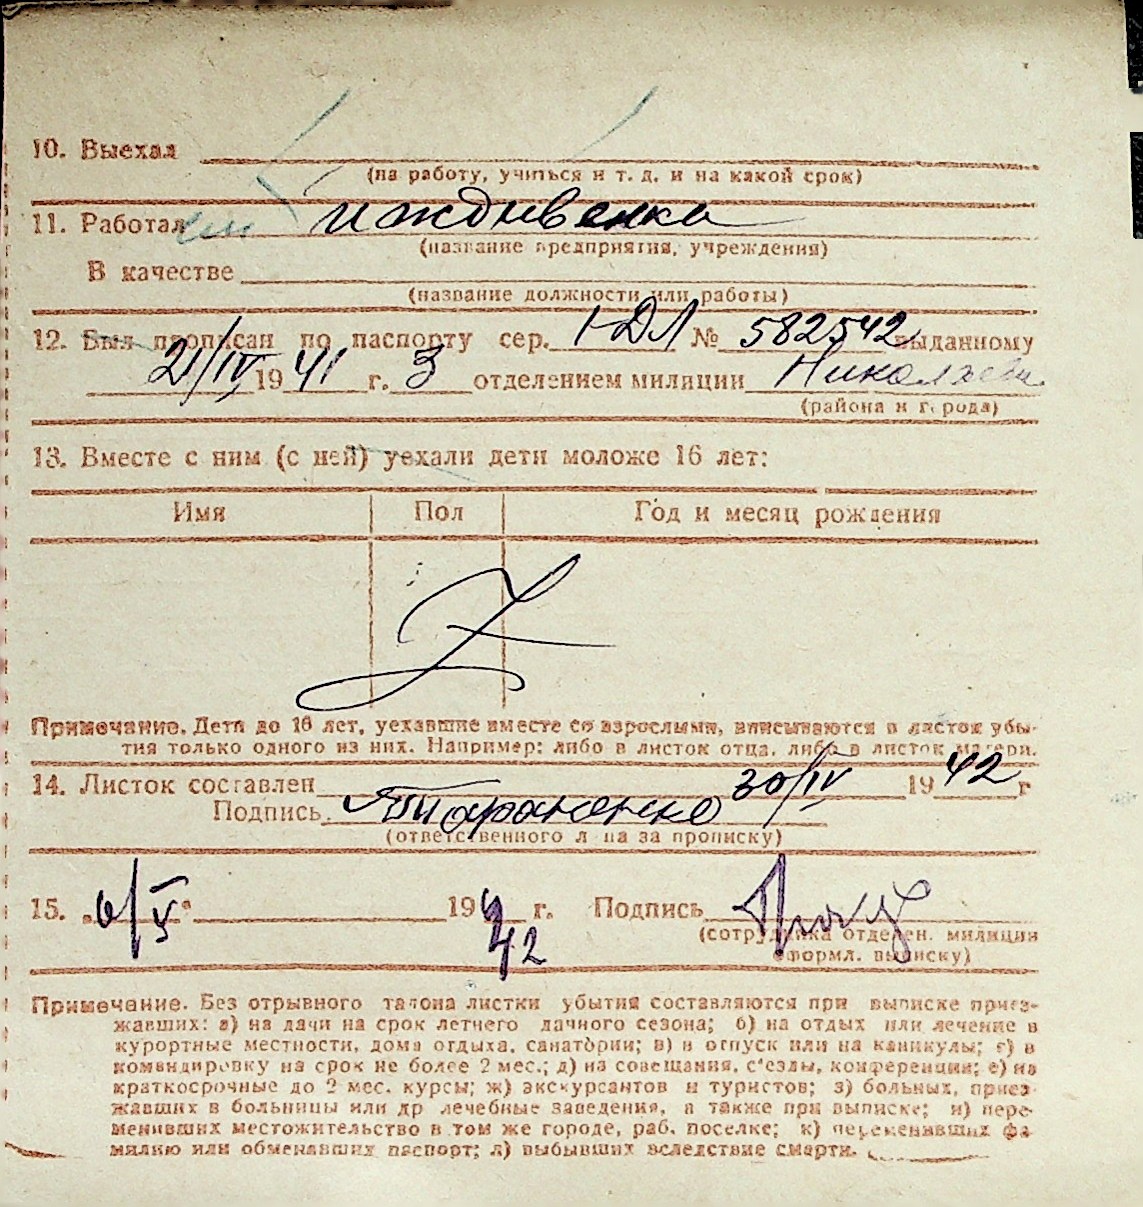 10. Выехал
(на работу, учиться и т. д. и на какой срок)
11. Работал иждивенка
(название предприятия, учреждения)
В качестве
(название должности или работы)
12. Был прописан по паспорту сер. I-ДЛ № 582542 выданному
21/IV 1941 г. 3 отделением милиции Николаева
(района и города)
13. Вместе с ним (с ней) уехали дети моложе 16 лет:
Имя Пол Год и месяц рождения
Примечание. Дети до 16 лет, уехавшие вместе со взрослыми, вписываются в листок убы-
тия только одного из них. Например: либо в листок отца, либо в листок матери.
14. Листок составлен 30/IV 1942 г
Подпись Тараненко
(ответственного л-ца за прописку)
15. „6/V" 1942 г. Подпись
(сотрудника отделен. милиции
оформл. выписку)
Примечание. Без отрывного талона листки убытия составляются при выписке приез-
жавших: а) на дачи на срок летнего дачного сезона; б) на отдых или лечение в
курортные местности, дома отдыха, санатории; в) в отпуск или на каникулы; г) в
командировку на срок не более 2 мес.; д) на совещания, с'езды, конференции; е) на
краткосрочные до 2 мес. курсы; ж) экскурсантов и туристов; з) больных, приез-
жавших в больницы или др лечебные заведения, а также при выписке; и) пере-
менивших местожительство в том же городе, раб. поселке; к) переменивших фа-
милию или обменявших паспорт; л) выбывших вследствие смерти.